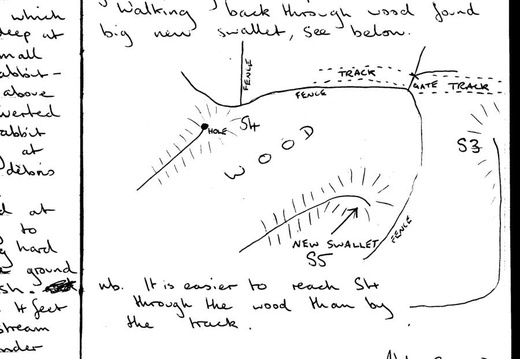 which
deep at
small
abbit-
above
verted
abbit
at
débris
d at
to
g hard
ground
sh.
4 feet
stream
nder
Walking back through wood found
big new swallet, see below.
FENCE
TRACK
FENCE
GATE TRACK
HOLE S4
WOOD
S3
NEW SWALLET
S5
FENCE
nb. It is easier to reach S4
through the wood than by
the track.